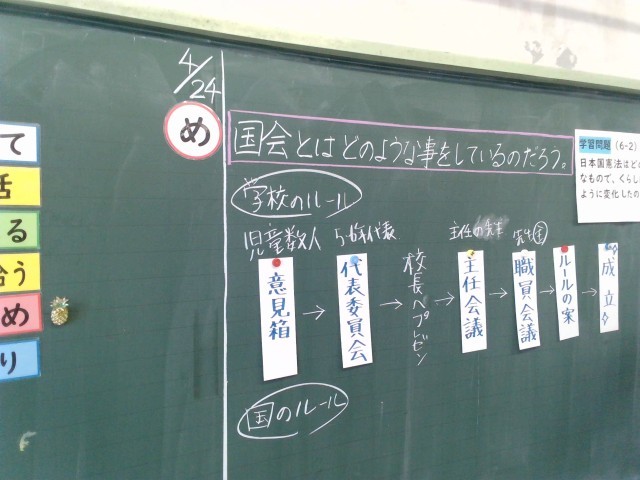 4/24
め
国会とはどのような事をしているのだろう。
学習問題 (6-2)
日本国憲法はど
なもので、くらし
ように変化したの
学校のルール
児童数人
5,6年代表
主任の先生
先生全
意見箱
→
代表委員会
→
校長へプレゼン
→
主任会議
→
職員会議
→
ルールの案
→
成立
国のルール
て
活
る
合う
め
り